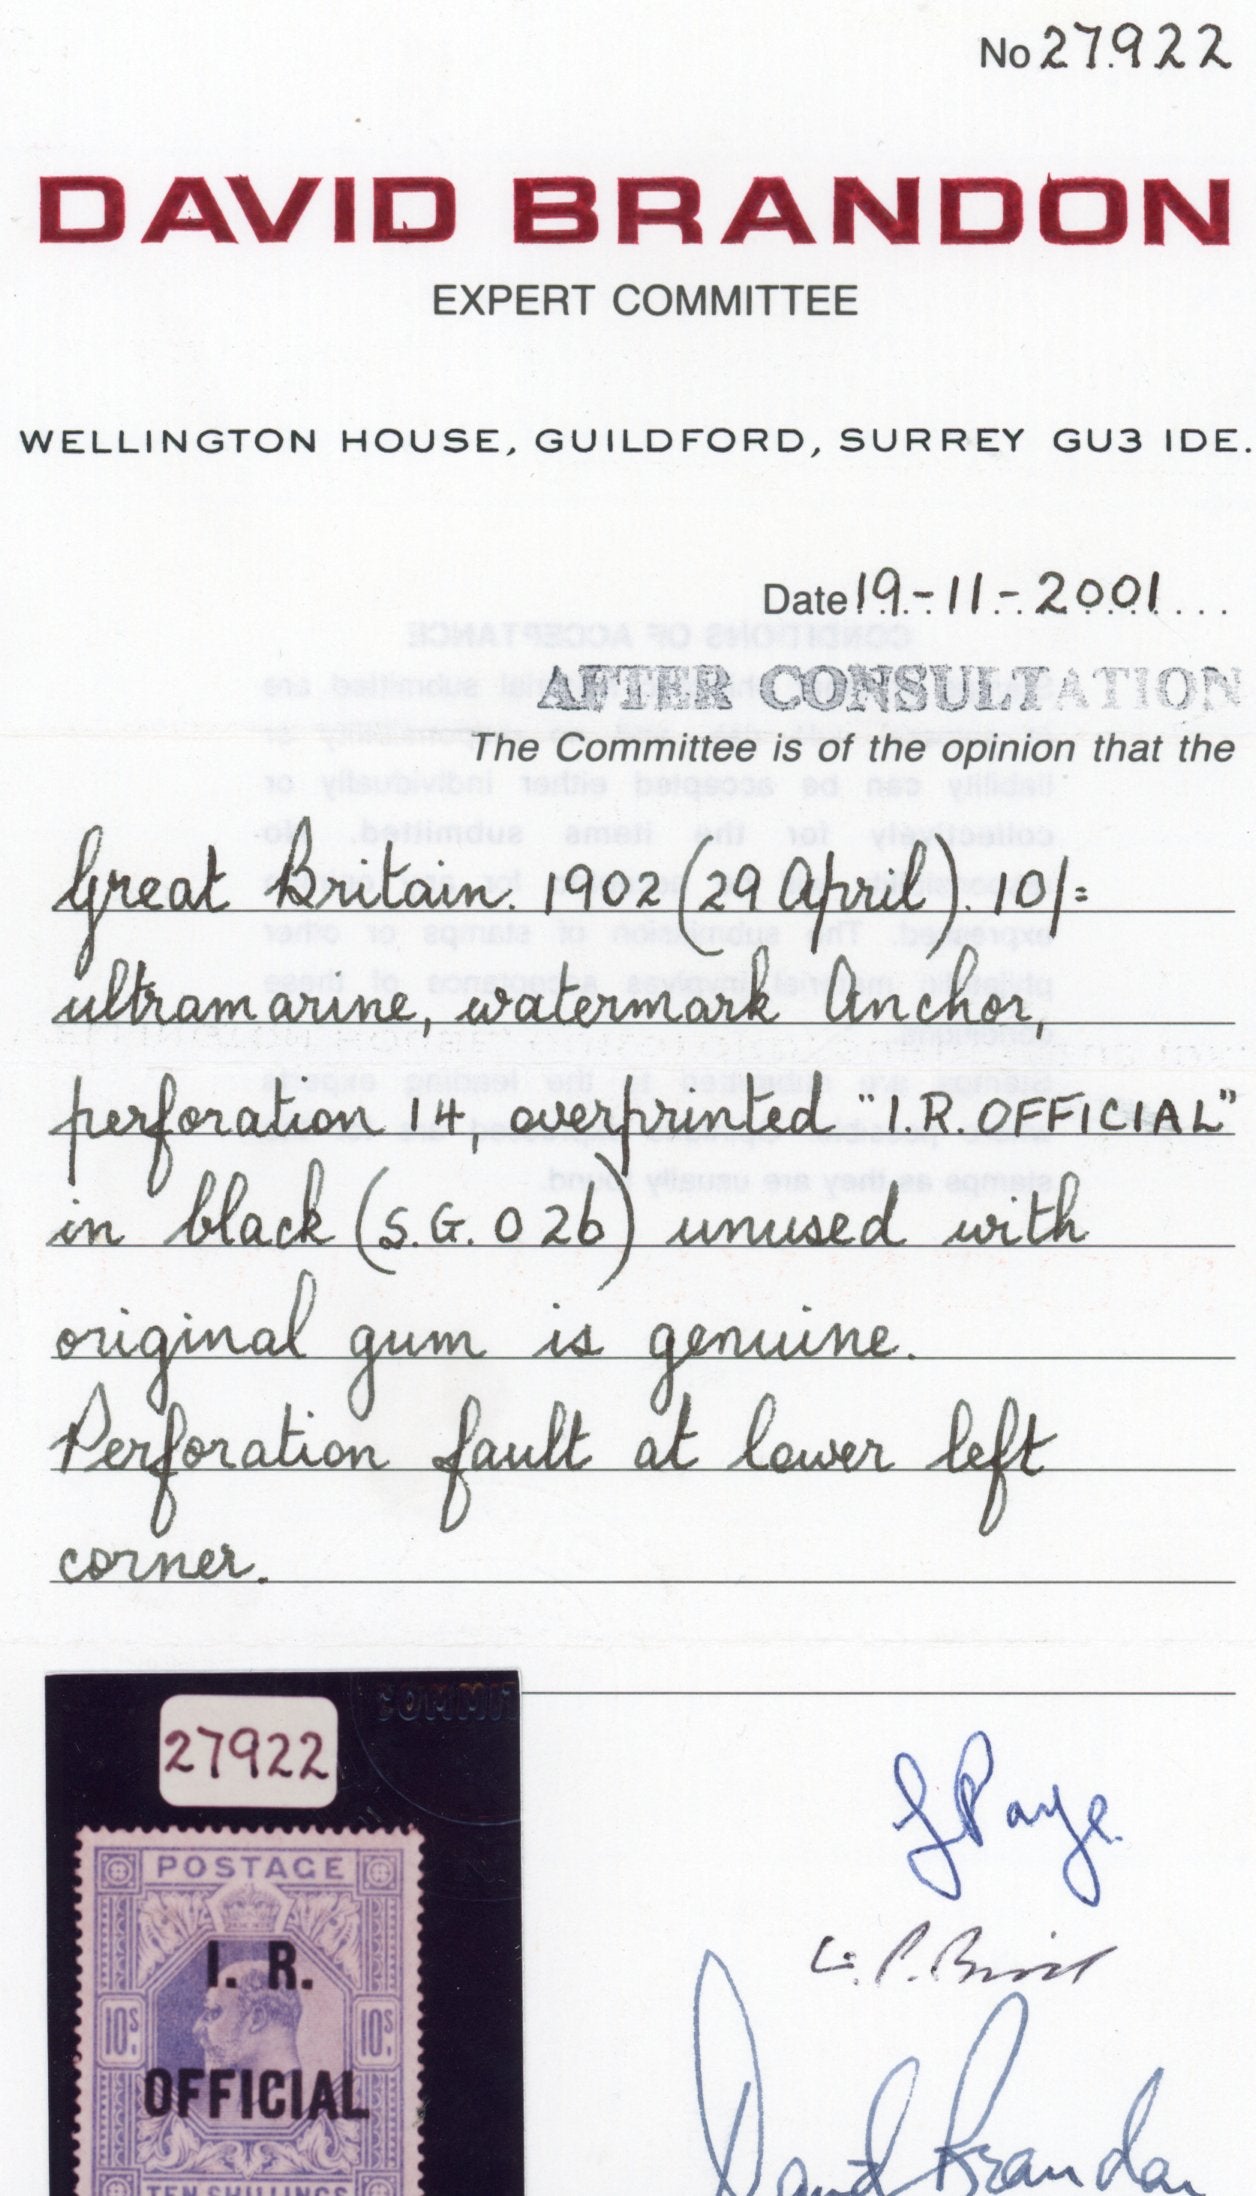 No 27922
DAVID BRANDON
EXPERT COMMITTEE
WELLINGTON HOUSE, GUILDFORD, SURREY GU3 IDE.
Date 19-11-2001
AFTER CONSULTATION
The Committee is of the opinion that the
Great Britain. 1902 (29 April). 10/=
ultramarine, watermark Anchor,
perforation 14, overprinted "I.R. OFFICIAL"
in black (S.G. O 26) unused with
original gum is genuine.
Perforation fault at lower left
corner.
27922
POSTAGE
I. R.
10s 10s
OFFICIAL
TEN SHILLINGS
David Brandon